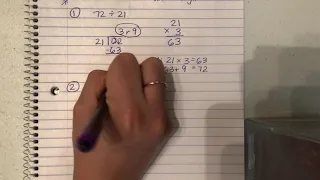 ① 72 ÷ 21
3 r 9
21
× 3
63
21 72
-63
21 × 3 = 63
63 + 9 = 72
②